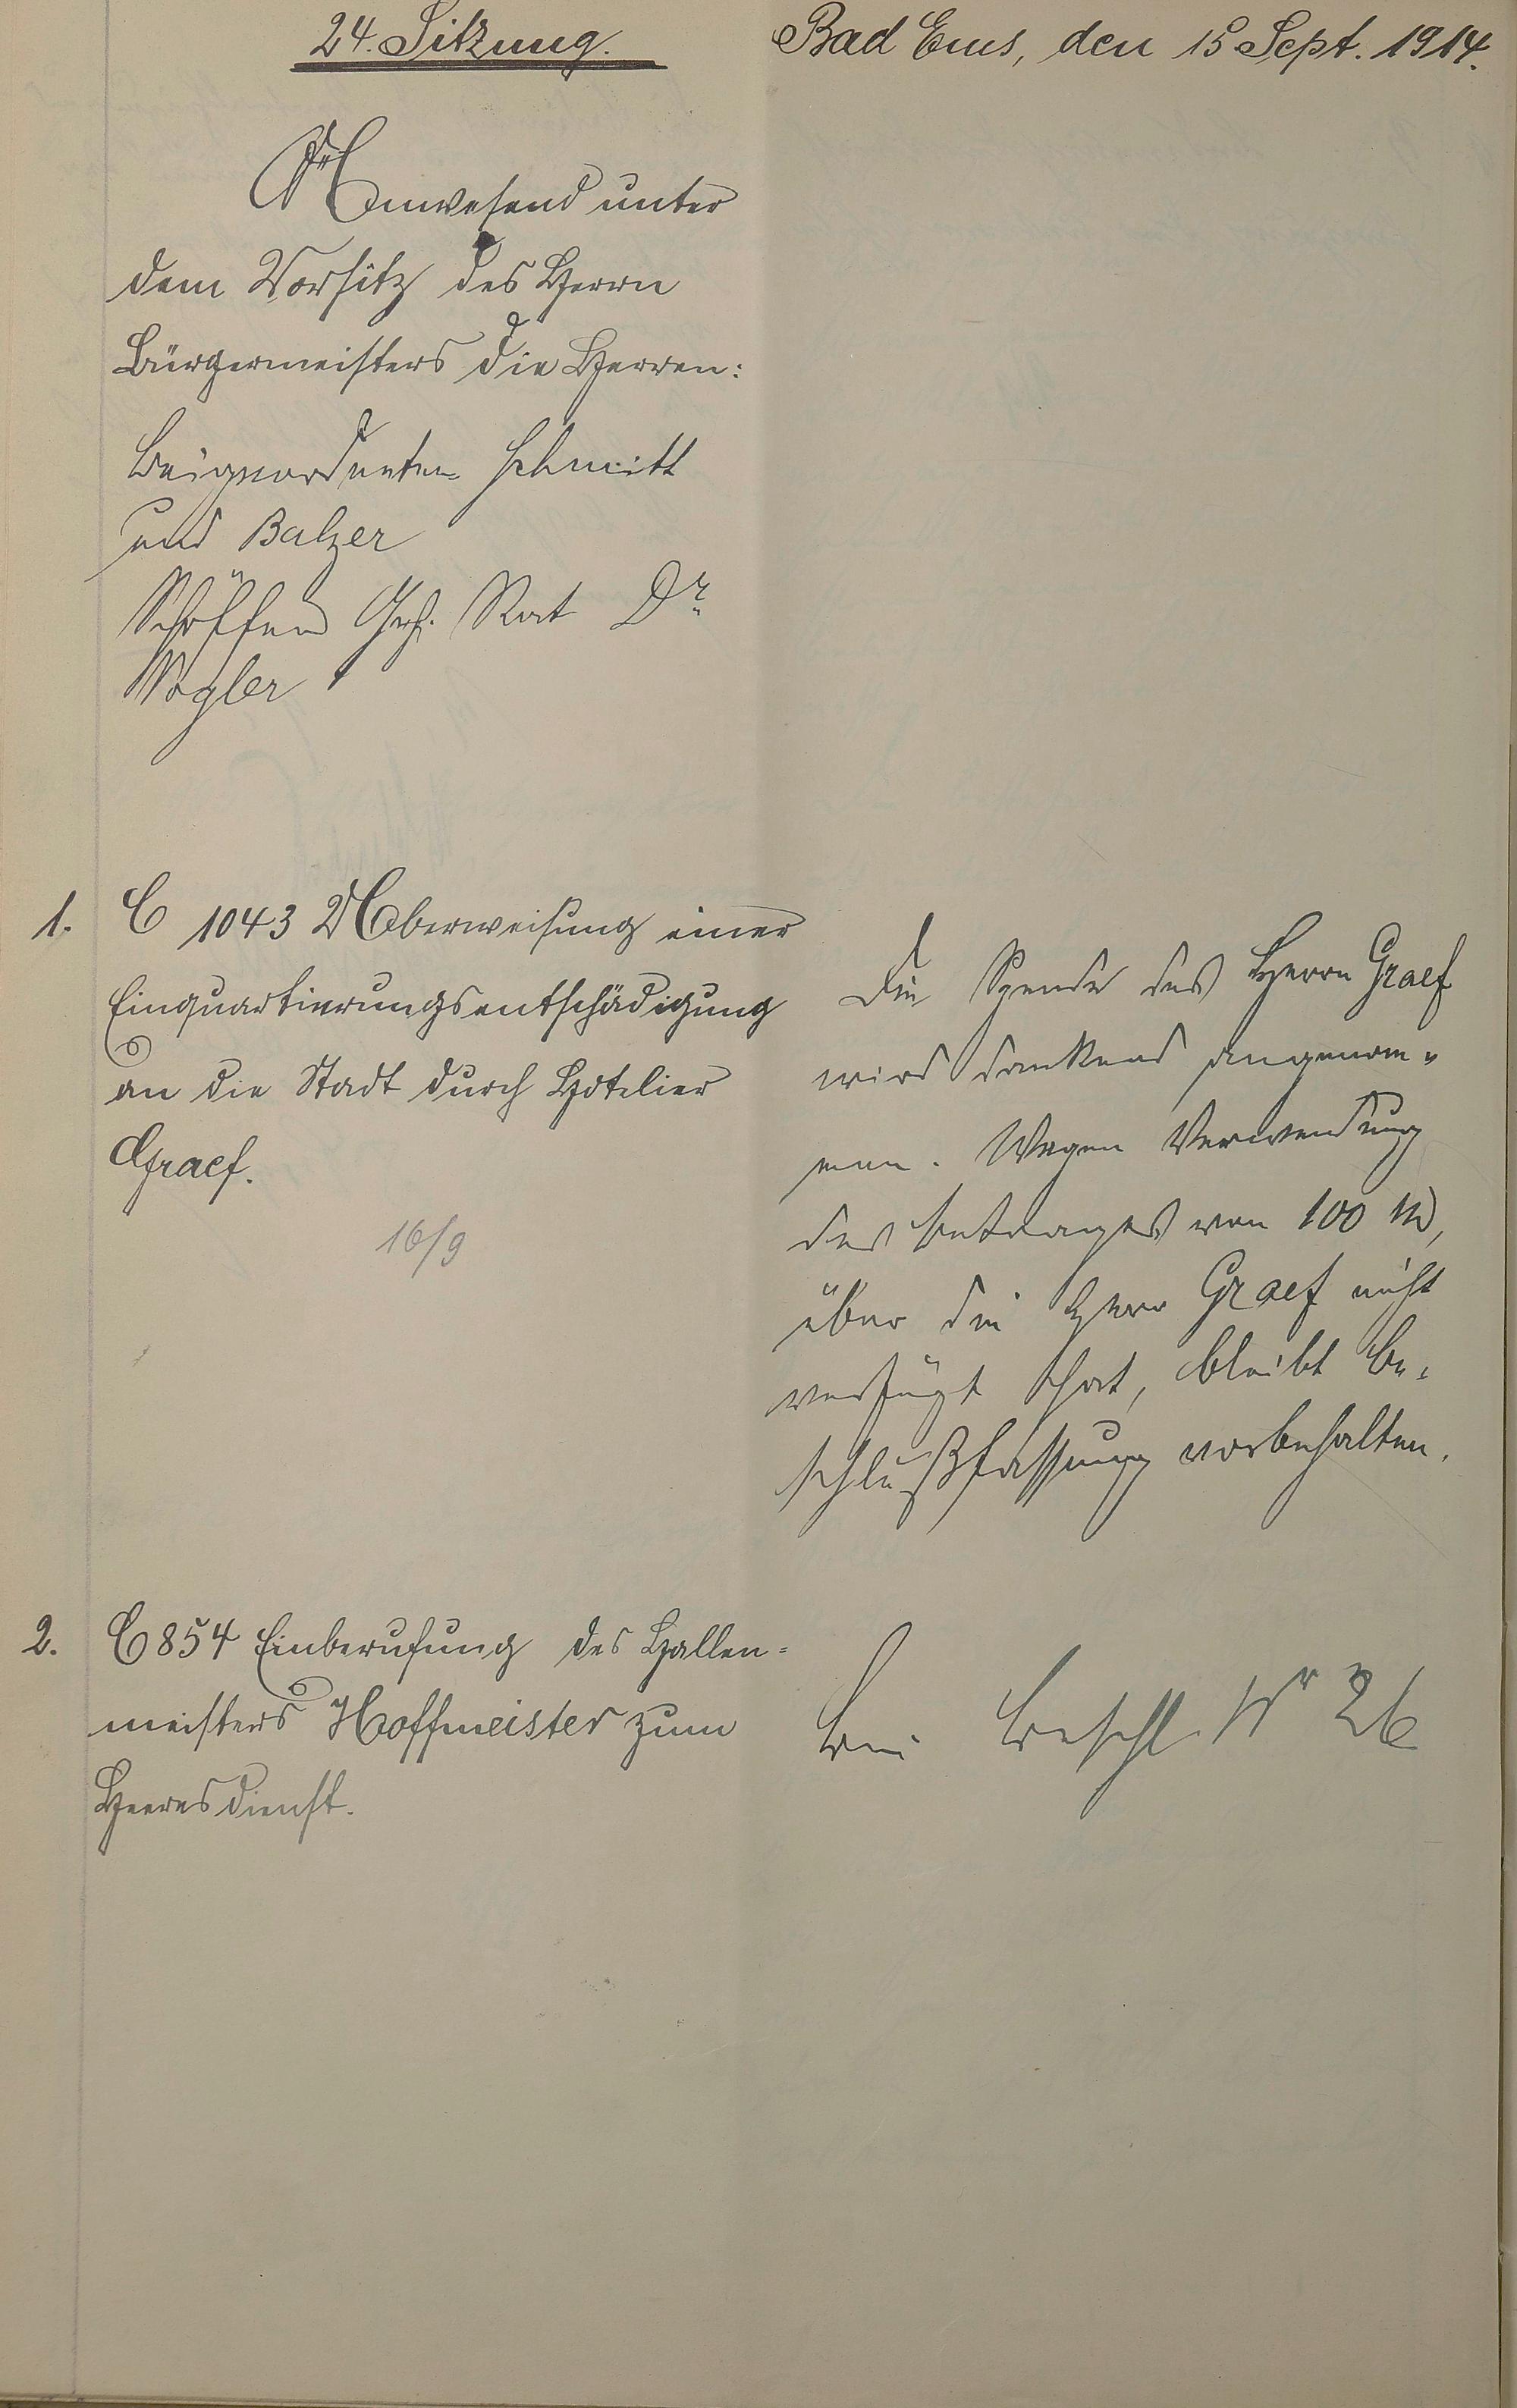 24. Sitzung.
Bad Ems, den 15 Sept. 1914.
Anwesend unter
dem Vorsitz des Herrn
Bürgermeisters die Herren:
Beigeordneten Schmitt
und Balzer
Schöffen Geh. Rat Dr
Vogler
1. C 1043 Ueberweisung einer
Einquartierungsentschädigung
an die Stadt durch Hotelier
Graef.
16/9
Die Spende des Herrn Graef
wird dankend angenom=
men. Wegen Verwendung
des Betrages von 100 M,
über die Herr Graef nicht
verfügt hat, bleibt Be=
schlußfassung vorbehalten.
2. C 854 Einberufung des Hallen=
meisters Hoffmeister zum
Heeresdienst.
Bei Beschl. Nr 26